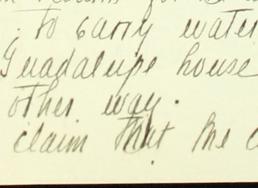 : to carry water
Guadalupe house
other way.
claim that the